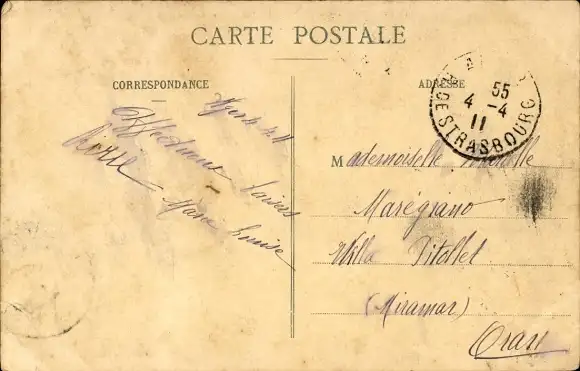 CARTE POSTALE
CORRESPONDANCE
Affectueux baisers
Marie Louise
ADRESSE
55
4 - 4
11
R. DE STRASBOURG
Mademoiselle
Marégiano
Villa Pitollet
(Miramar)
Oran